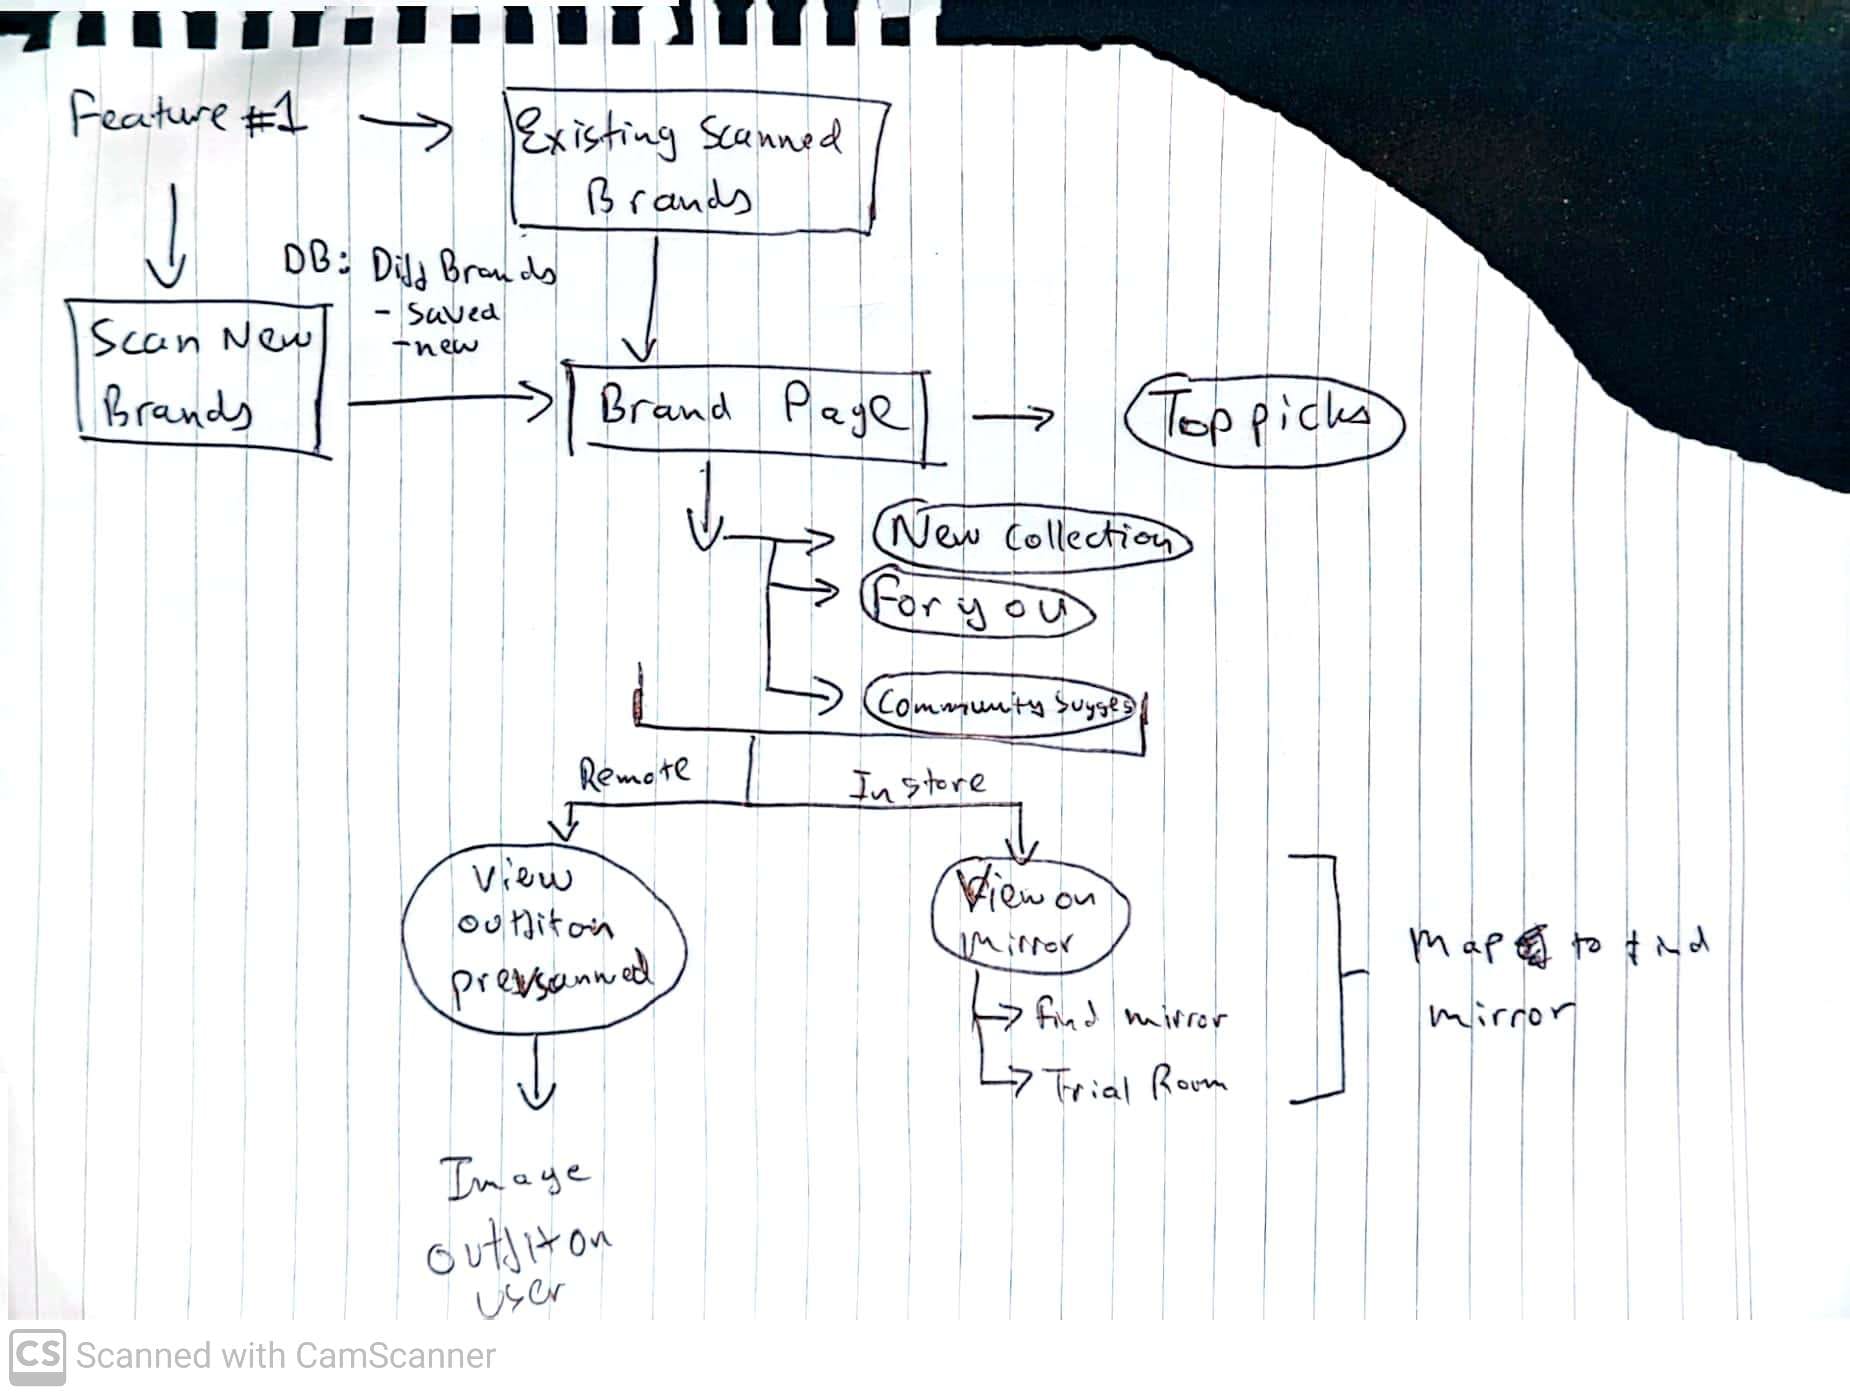 Feature #1
Existing Scanned
Brands
DB: Diff Brands
- saved
- new
Scan New
Brands
Brand Page
Top picks
New Collection
For you
Community Sugges
Remote
In store
View
outfit on
prevscanned
View on
mirror
find mirror
Trial Room
Map to find
mirror
Image
outfit on
user
CS Scanned with CamScanner